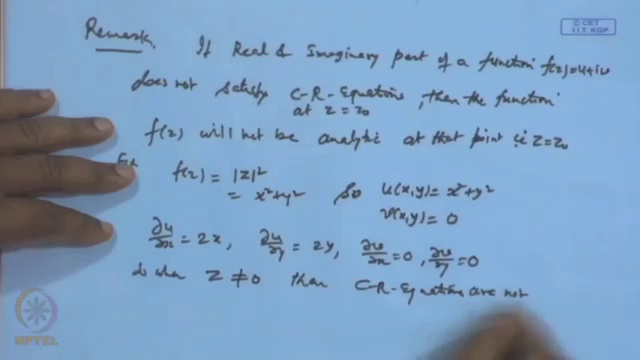 © CET
I.I.T. KGP
Remark. If Real & Imaginary part of a function f(z)=u+iv
does not satisfy C-R-Equations, then the function
at z=z₀
f(z) will not be analytic at that point i.e z=z₀
Ex. f(z) = |z|²
= x²+y² So u(x,y)= x²+y²
v(x,y)= 0
∂u/∂x = 2x, ∂u/∂y = 2y, ∂v/∂x =0, ∂v/∂y =0
z ≠0 then C-R-Equations are not
NPTEL